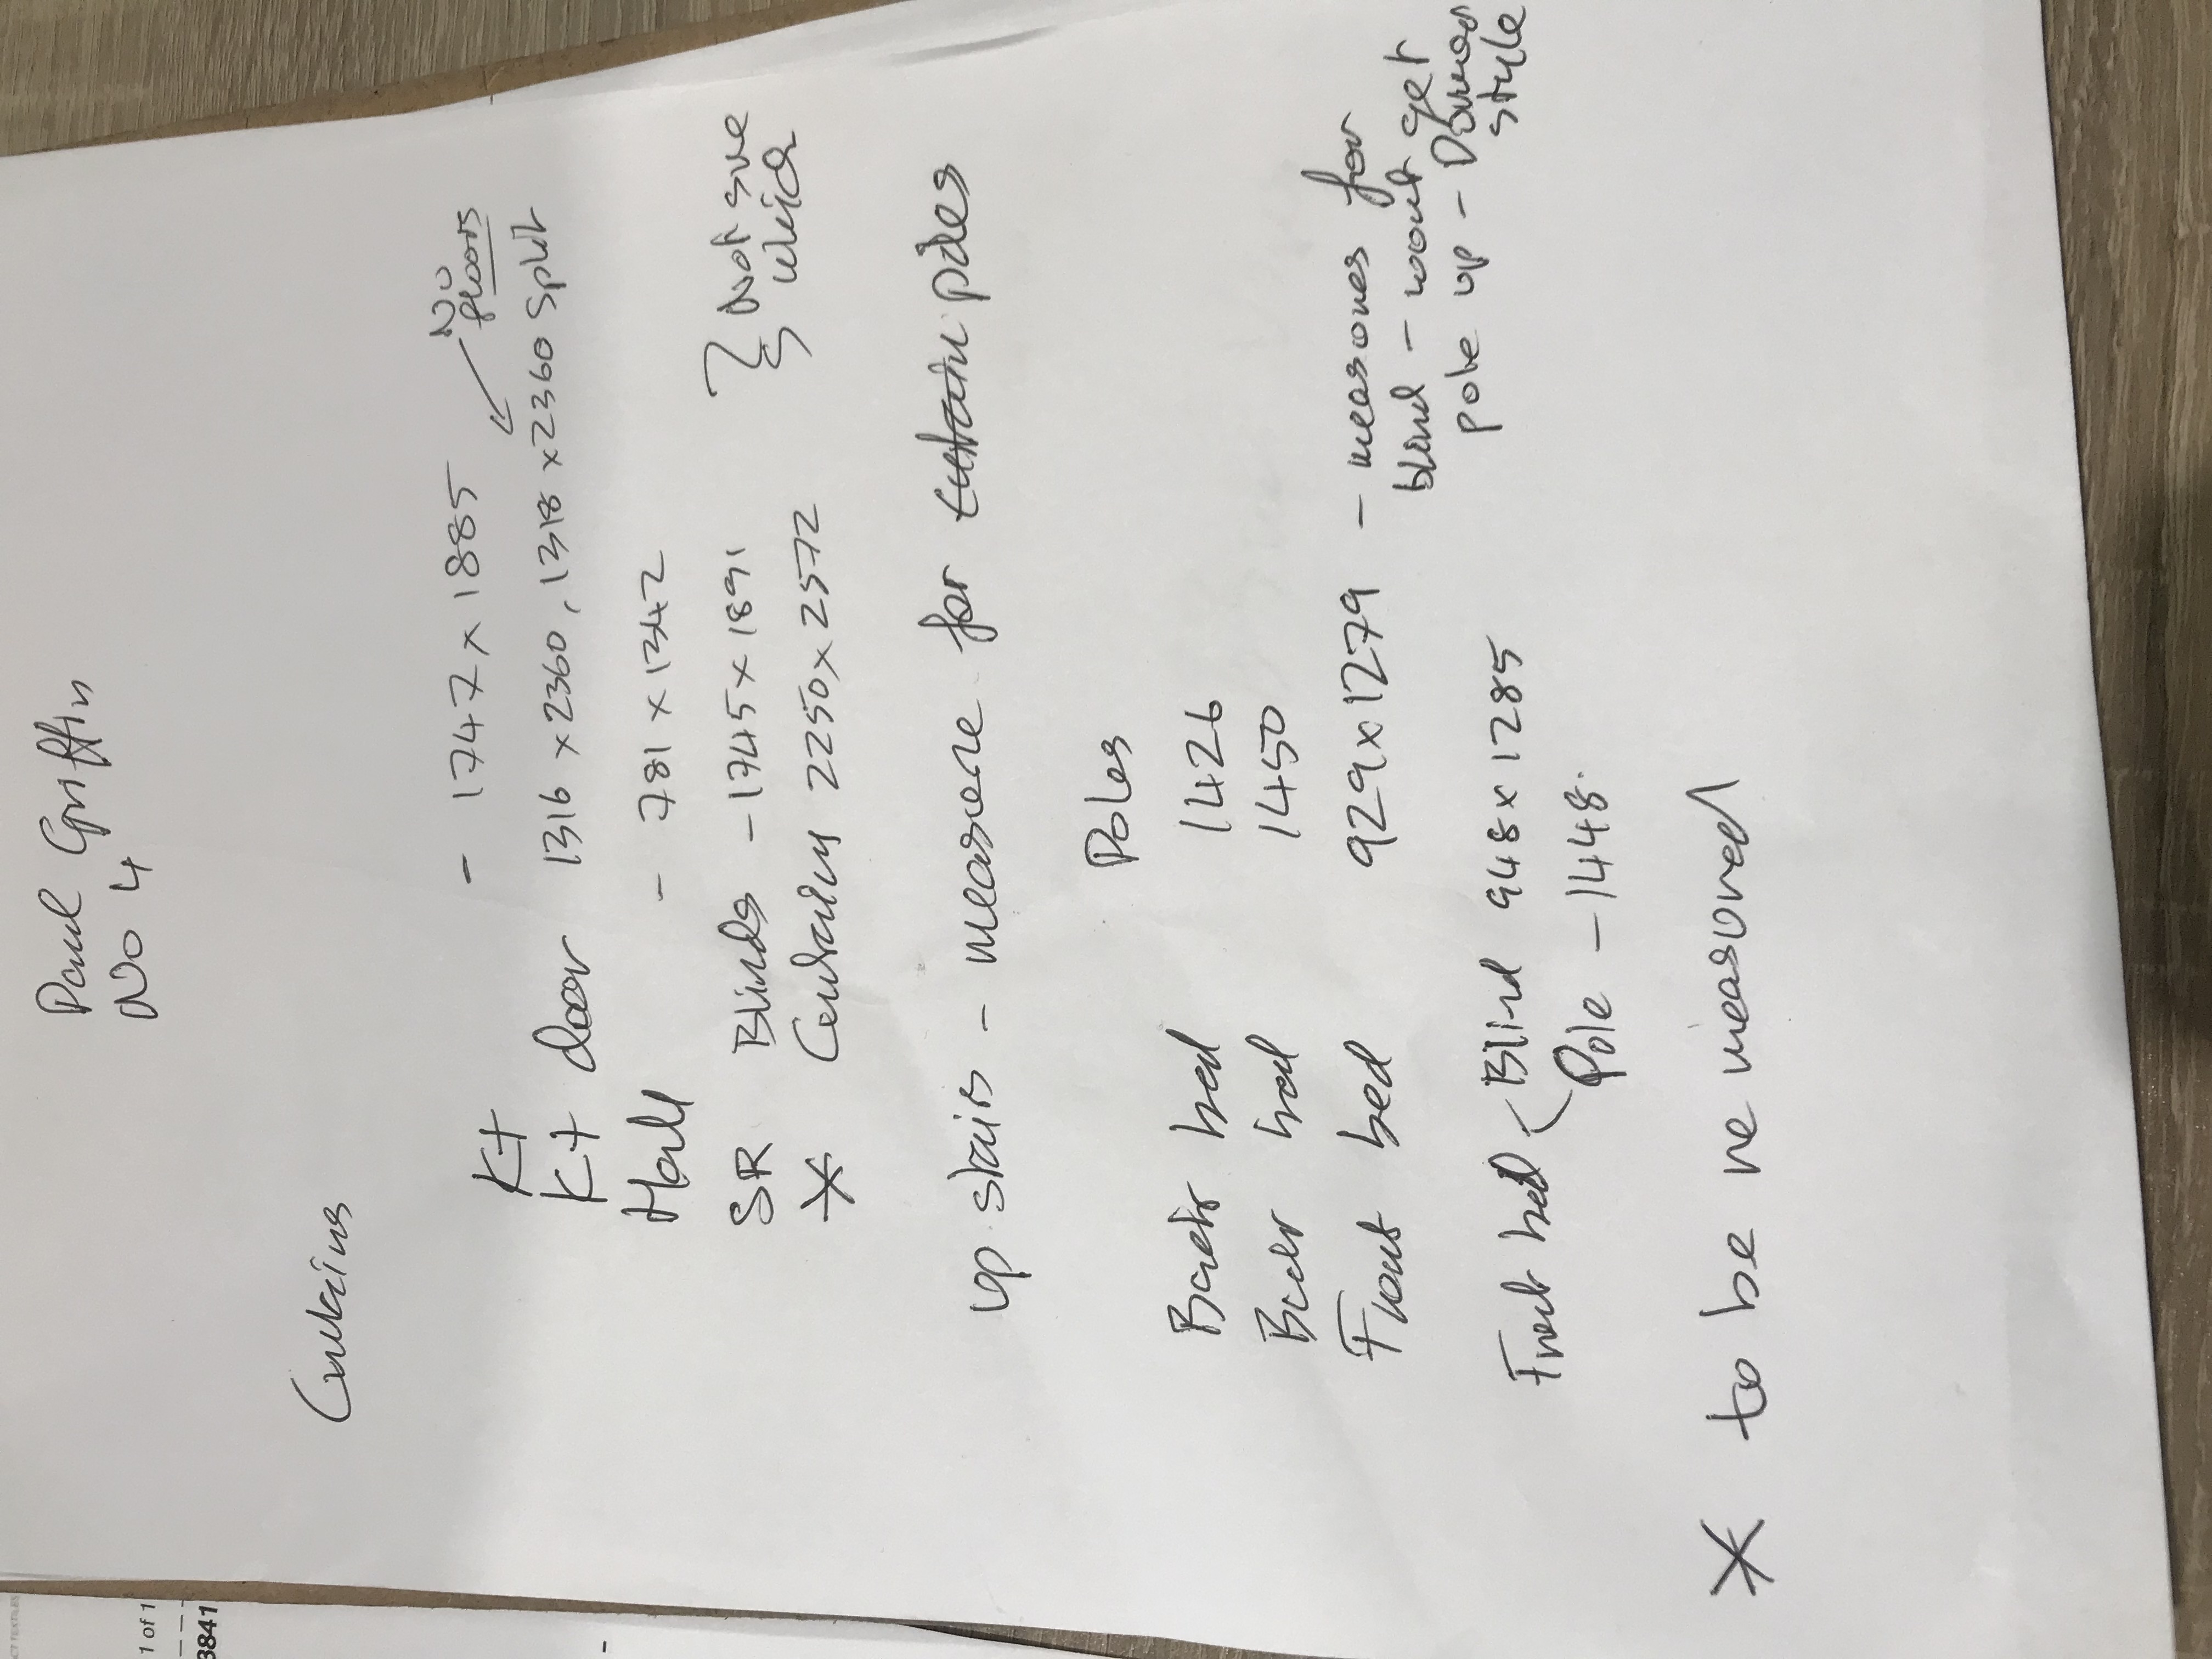 Paul Griffin
No 4
Curtains
Kit - 1747 x 1885
No
floors
Kit door 1316 x 2360, 1318 x 2360 Split
Hall - 781 x 1342
SR Blinds - 1745 x 1891 } Not sure
* Curtains 2250 x 2572 which
up stairs - measure for curtain poles
Poles
Back bed 1426
Back bed 1450
Front bed 929 x 1279 - measures for
blind - wont get
pole up - Dormer
style
Front bed Blind 948 x 1285
Pole - 1448.
* to be re measured
1 of 1
3841